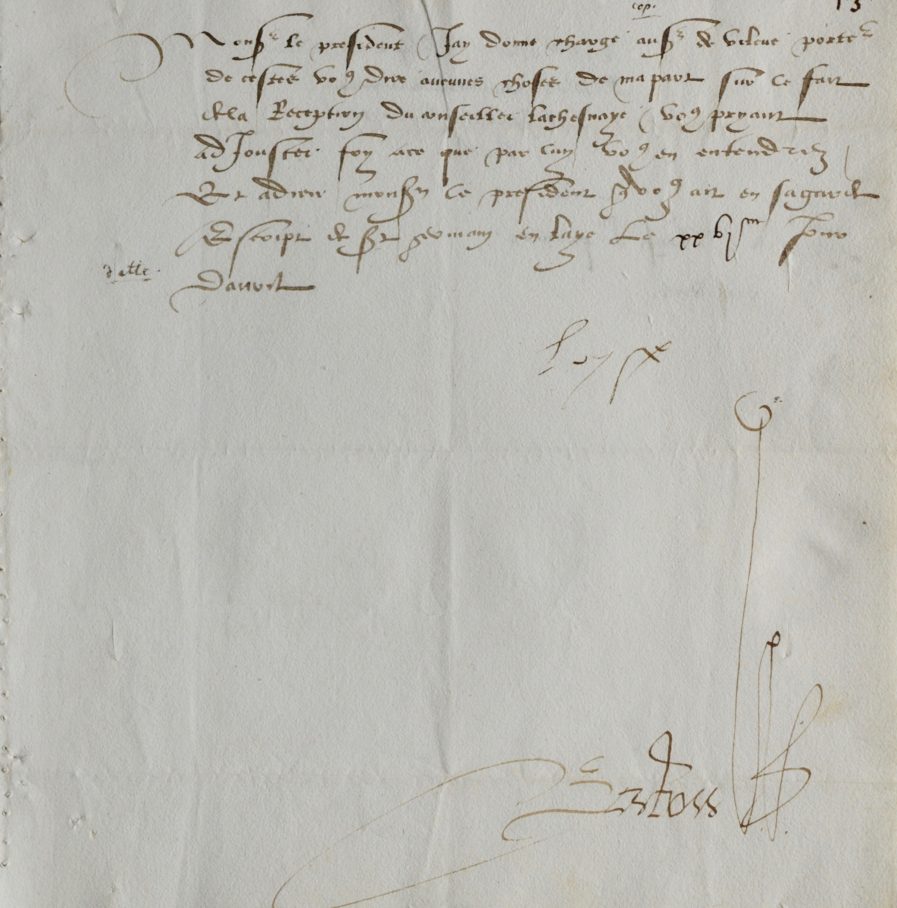 cop.
13
Monsr le president Jay donne charge au sr de vileue porter
de cestes vo9 dire aucunes choses de ma part sur le fait
de la Reception du conseiller lachesnaye vo9 pryant
adJouster foy ace que par luy vo9 en entendrez
Et adieu monsr le president qui vo9 ait en sa garde
Escript de St germain en laye Le xxvjm Jour
davril
Loyse